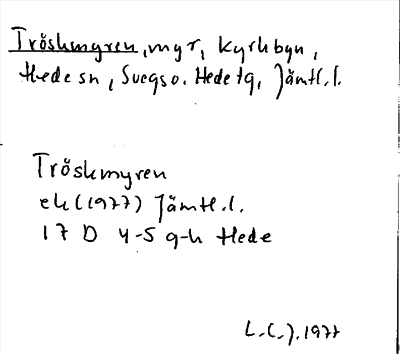 Tröskmyren, myr, Kyrkbyn,
Hede sn, Svegs o. Hede tg, Jämtl.l.
Tröskmyren
ek (1977) Jämtl.l.
17 D 4-5 g-h Hede
L.(-). 1977